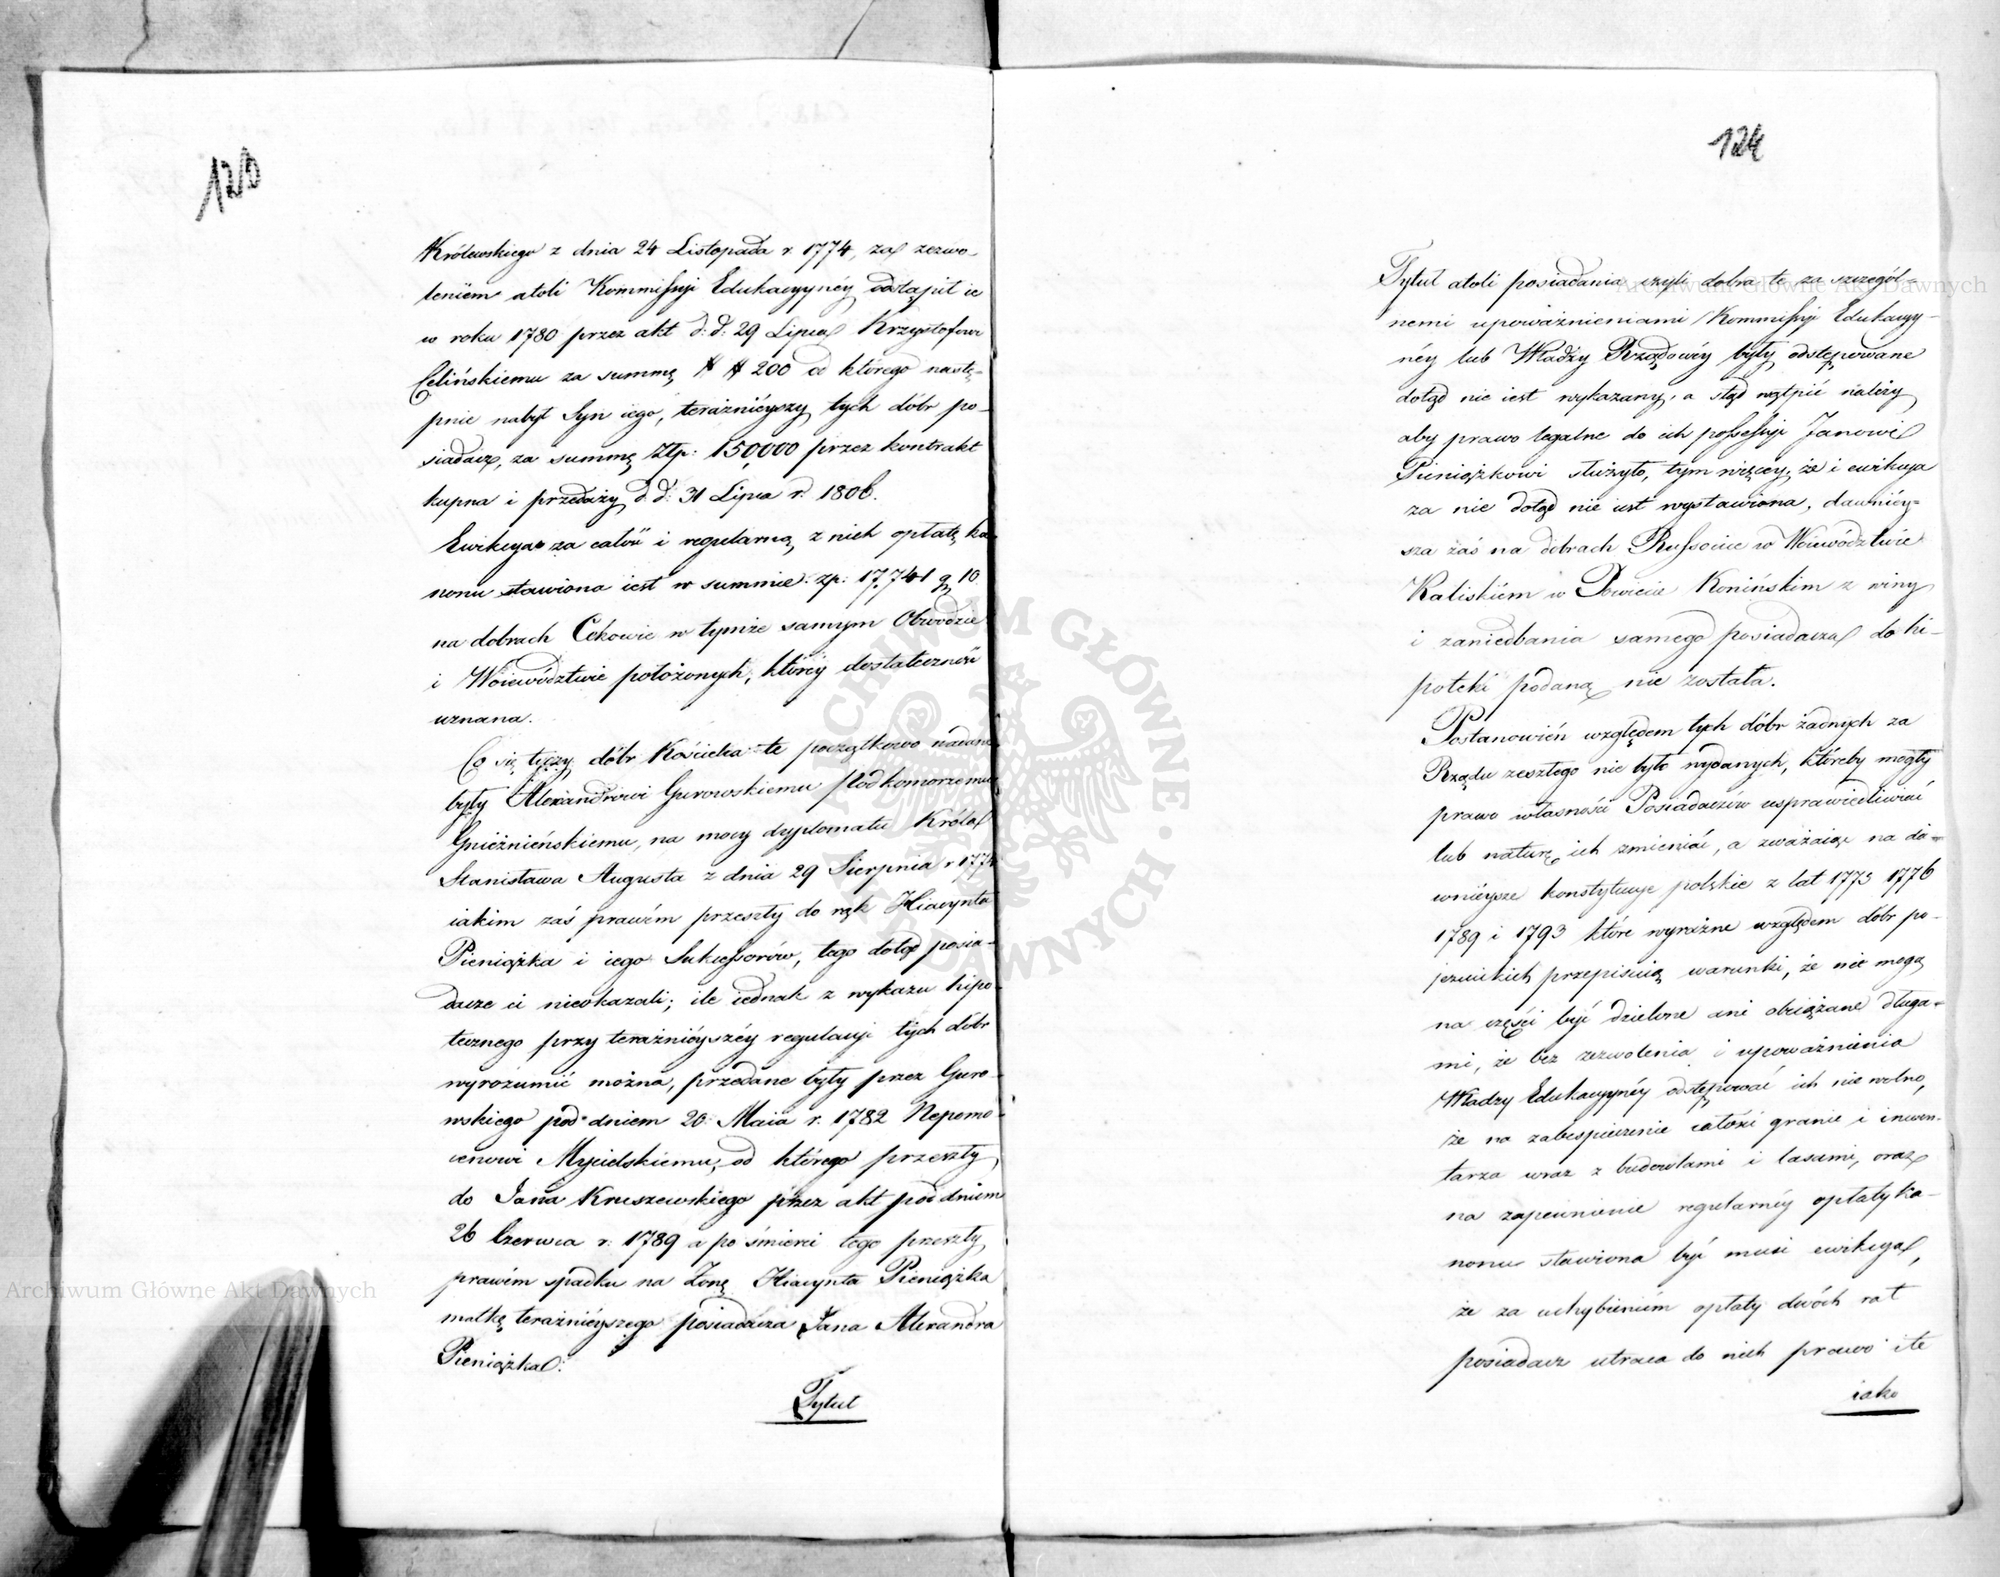 120
Królewskiego z dnia 24 Listopada r. 1774, za zezwo-
leniem atoli Kommissyi Edukacyynéy odstąpił ie
w roku 1780 przez akt d: d: 29 Lipca Krzysztofowi
Celińskiemu za summę # # 200 od którego nastę-
pnie nabył Syn iego, teraźnieyszy tych dóbr po-
siadacz, za summę Złp: 150,000 przez kontrakt
kupna i przedaży d: d: 31 Lipca r. 1806.
Ewikcya za całość i regularną z nich opłatę ka-
nonu stawiona iest w summie: zp: 17,741 g 10
na dobrach Cekowie w tymże samym Obwodzie
i Woiewództwie położonych, któréy dostateczność
uznana.
Co się tyczy dóbr Kościelca te początkowo nadane
były Alexandrowi Gurowskiemu Podkomorzemu
Gnieźnieńskiemu, na mocy dyplomatu Króla
Stanisława Augusta z dnia 29 Sierpnia r 1774
iakim zaś prawem przeszły do rąk Hiacynta
Pieniążka i iego Sukcessorów, tego dotąd posia-
dacze ci nieokazali; ile iednak z wykazu hipo-
tecznego przy teraźnieyszéy regulacyi tych dóbr
wyrozumieć można, przedane były przez Guro-
wskiego pod dniem 20 Maia r. 1782 Nepomo-
cenowi Mycielskiemu, od którego przeszły
do Jana Kruszewskiego przez akt pod dniem
26 Czerwca r. 1789 a po śmierci tego przeszły
prawem spadku na Żonę Hiacynta Pieniążka
matkę teraźnieyszego posiadacza Jana Alexandra
Pieniążka.
Tytuł
124
Tytuł atoli posiadania czyli dobra te za szczegól-
nemi upoważnieniami Kommissyi Edukacyy-
néy lub Władzy Rządowéy były odstępowane
dotąd nie iest wykazany, a stąd wątpić należy
aby prawo legalne do ich possessyi Janowi
Pieniążkowi służyło, tym więcey, że i ewikcya
za nie dotąd nie iest wystawiona, dawniéy-
sza zaś na dobrach Russocice w Woiewództwie
Kaliskiém w Powiecie Konińskim z winy
i zaniedbania samego posiadacza do hi-
poteki podaną nie została.
Postanowień względem tych dóbr żadnych za
Rządu zeszłego nie było wydanych, któreby mogły
prawo własności Posiadaczów usprawiedliwiać
lub naturę ich zmieniać, a zważaiąc na da-
wnieysze konstytucye polskie z lat 1773 1776
1789 i 1793 które wyraźne względem dóbr po-
jezuickich przepisuią warunki, że nie mogą
na części być dzielone ani obciążane długa-
mi, że bez zezwolenia i upoważnienia
Władzy Edukacyynéy odstępować ich nie wolno,
że na zabespieczenie całości granic i inwen-
tarza wraz z budowlami i lasami, oraz
na zapewnienie regularnéy opłaty ka-
nonu stawiona być musi ewikcya,
że za uchybieniem opłaty dwóch rat
posiadacz utraca do nich prawo ite
iako
Archiwum Główne Akt Dawnych
Archiwum Główne Akt Dawnych
ARCHIWUM GŁÓWNE AKT DAWNYCH